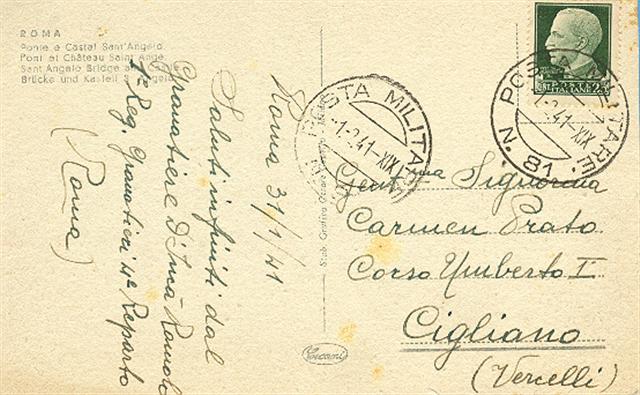 ROMA
Ponte e Castel Sant'Angelo
Pont et Château Saint Ange
Sant Angelo Bridge and Castle
Brücke und Kastell S. Angelo
Roma 31/1/41
Saluti infiniti dal
Granatiere D'Imá Romolo
1° Reg. Granatieri 4° Reparto
(Roma)
POSTA MILITARE
1-2-41-XIX
POSTE ITALIANE
POSTA MILITARE
1-2-41-XIX
N. 81
Gent.ma Signorina
Carmen Prato
Corso Umberto I
Cigliano
(Vercelli)
Cecami